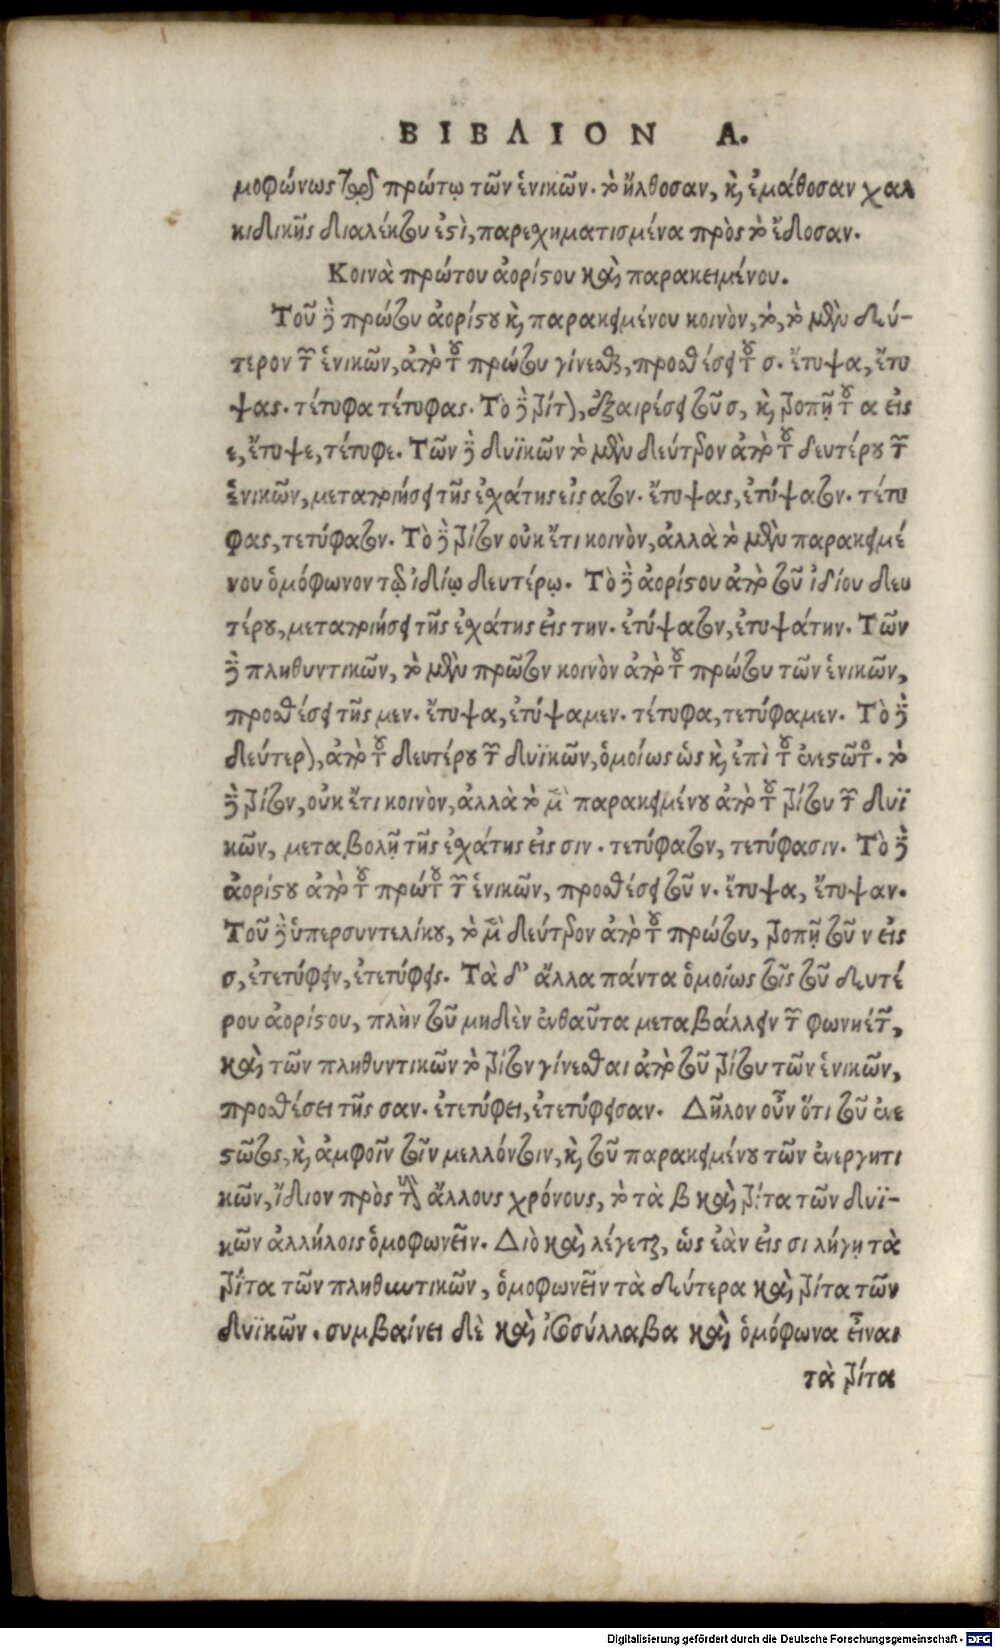 ΒΙΒΛΙΟΝ Α.
μοφώνως τῷ πρώτῳ τῶν ἑνικῶν. τὸ ἤλθοσαν, καὶ ἐμάθοσαν χαλ
κιδικῆς διαλέκτου ἐστὶ, παρεσχηματισμένα πρὸς τὸ ἔδοσαν.
Κοινὰ πρώτου ἀορίστου καὶ παρακειμένου.
Τοῦ δὲ πρώτου ἀορίστου καὶ παρακειμένου κοινὸν, τὸ, τὸ μὲν δεύ-
τερον τῶν ἑνικῶν, ἀπὸ τοῦ πρώτου γίνεσθαι, προσθέσει τοῦ σ. ἔτυψα, ἔτυ
ψας. τέτυφα τέτυφας. Τὸ δὲ τρίτον, ἐξαιρέσει τοῦ σ, καὶ τροπῇ τοῦ α εἰς
ε, ἔτυψε, τέτυφε. Τῶν δὲ δυϊκῶν τὸ μὲν δεύτερον ἀπὸ τοῦ δευτέρου τῶν
ἑνικῶν, μεταποιήσει τῆς ἐσχάτης εἰς ατον. ἔτυψας, ἐτύψατον. τέτυ
φας, τετύφατον. Τὸ δὲ τρίτον οὐκ ἔτι κοινὸν, ἀλλὰ τὸ μὲν παρακειμέ
νου ὁμόφωνον τῷ ἰδίῳ δευτέρῳ. Τὸ δὲ ἀορίστου ἀπὸ τοῦ ἰδίου δευ
τέρου, μεταποιήσει τῆς ἐσχάτης εἰς την. ἐτύψατον, ἐτυψάτην. Τῶν
δὲ πληθυντικῶν, τὸ μὲν πρῶτον κοινὸν ἀπὸ τοῦ πρώτου τῶν ἑνικῶν,
προσθέσει τῆς μεν. ἔτυψα, ἐτύψαμεν. τέτυφα, τετύφαμεν. Τὸ δὲ
δεύτερον, ἀπὸ τοῦ δευτέρου τῶν δυϊκῶν, ὁμοίως ὡς καὶ ἐπὶ τοῦ ἐνεστῶτος. τὸ
δὲ τρίτον, οὐκ ἔτι κοινὸν, ἀλλὰ τὸ μὲν παρακειμένου ἀπὸ τοῦ τρίτου τῶν δυϊ
κῶν, μεταβολῇ τῆς ἐσχάτης εἰς σιν. τετύφατον, τετύφασιν. Τὸ δὲ
ἀορίστου ἀπὸ τοῦ πρώτου τῶν ἑνικῶν, προσθέσει τοῦ ν. ἔτυψα, ἔτυψαν.
Τοῦ δὲ ὑπερσυντελίκου, τὸ μὲν δεύτερον ἀπὸ τοῦ πρώτου, τροπῇ τοῦ ν εἰς
σ, ἐτετύφειν, ἐτετύφεις. Τὰ δ' ἄλλα πάντα ὁμοίως τοῖς τοῦ δευτέ
ρου ἀορίστου, πλὴν τοῦ μηδὲν ἐνθαῦτα μεταβάλλειν τῶν φωνηέντων,
καὶ τῶν πληθυντικῶν τὸ τρίτον γίνεσθαι ἀπὸ τοῦ τρίτου τῶν ἑνικῶν,
προσθέσει τῆς σαν. ἐτετύφει, ἐτετύφεισαν. Δῆλον οὖν ὅτι τοῦ ἐνε
στῶτος, καὶ ἀμφοῖν τοῖν μελλόντοιν, καὶ τοῦ παρακειμένου τῶν ἐνεργητι
κῶν, ἴδιον πρὸς τοὺς ἄλλους χρόνους, τὸ τὰ β καὶ τρίτα τῶν δυϊ-
κῶν ἀλλήλοις ὁμοφωνεῖν. Διὸ καὶ λέγεται, ὡς ἐὰν εἰς σι λήγῃ τὰ
τρίτα τῶν πληθυντικῶν, ὁμοφωνεῖν τὰ δεύτερα καὶ τρίτα τῶν
δυϊκῶν. συμβαίνει δὲ καὶ ἰσοσύλλαβα καὶ ὁμόφωνα εἶναι
τὰ τρίτα
Digitalisierung gefördert durch die Deutsche Forschungsgemeinschaft - DFG